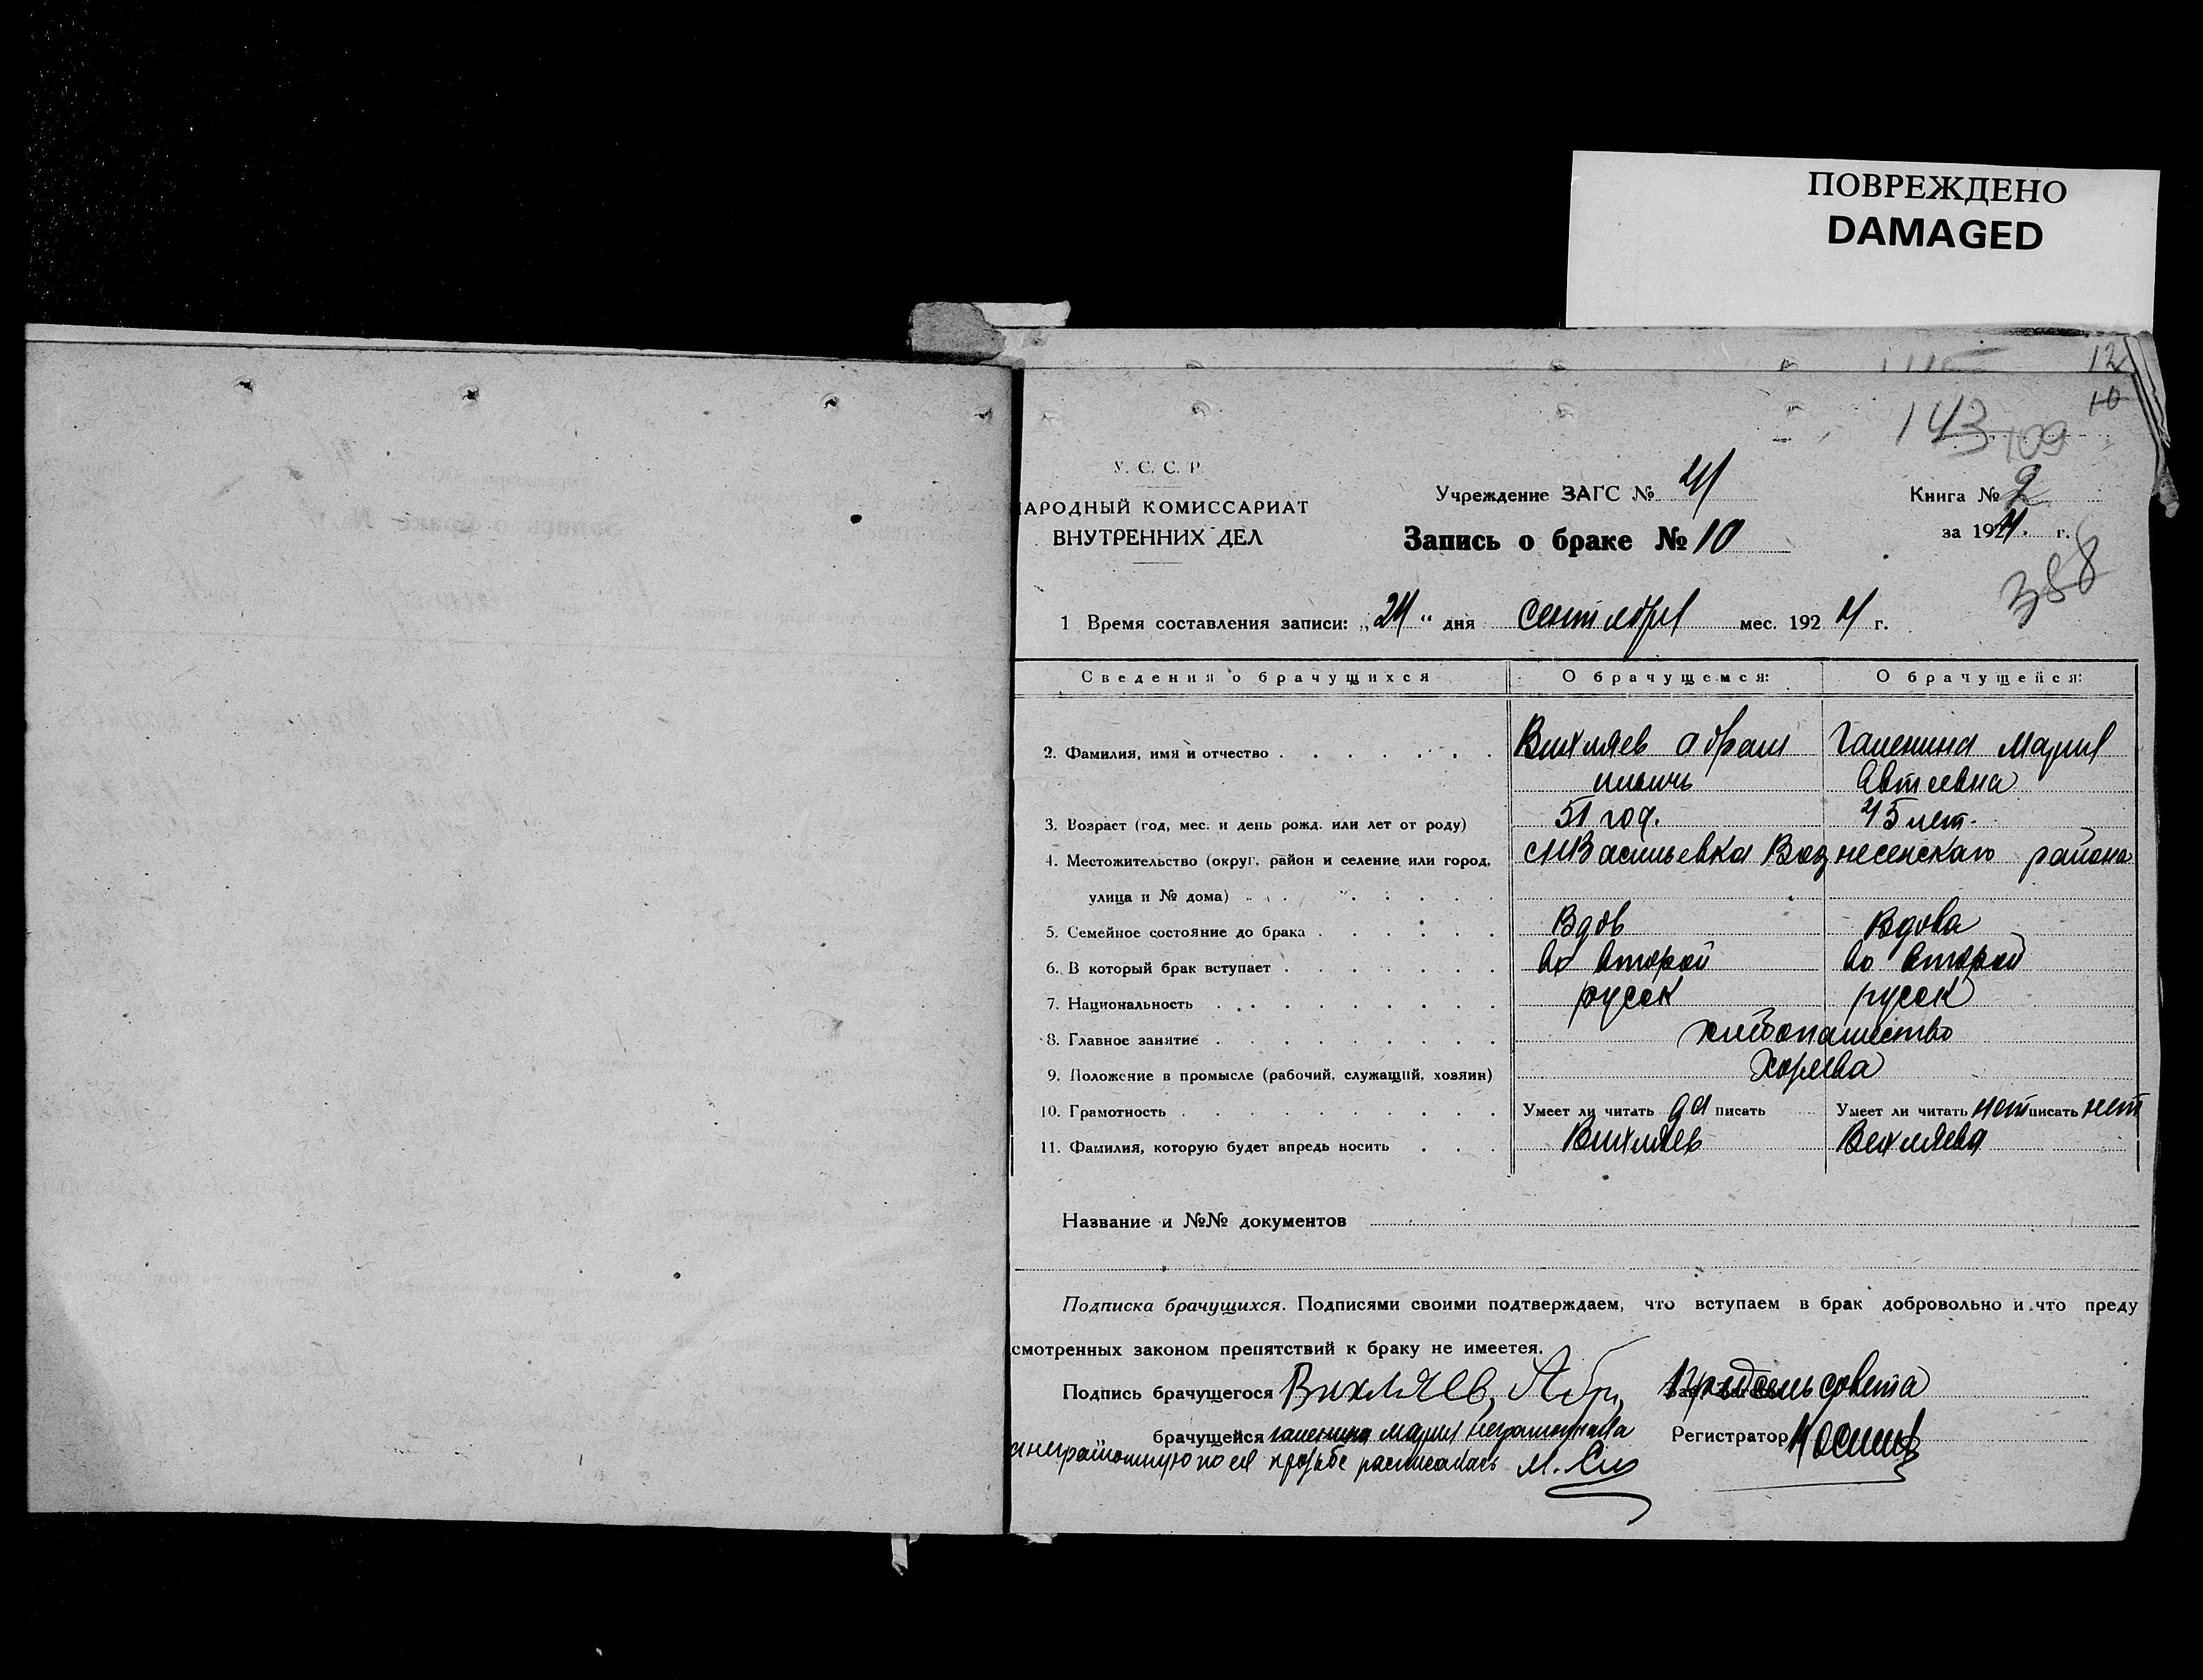 ПОВРЕЖДЕНО
DAMAGED
12
10
143
109
У. С. С. Р.
АРОДНЫЙ КОМИССАРИАТ
ВНУТРЕННИХ ДЕЛ
Учреждение ЗАГС № 4
Запись о браке № 10
Книга № 2
за 1924 г.
388
1 Время составления записи: „24“ дня сентября мес. 1924 г.
Сведения о брачущихся О брачущемся: О брачущейся:
2. Фамилия, имя и отчество Вихляев Абрам Галенина Мария
ильичь Автеевна
3. Возраст (год, мес. и день рожд. или лет от роду) 51 год. 45 лет.
4. Местожительство (округ, район и селение или город, Васильевка Вознесенскаго района
улица и № дома)
5. Семейное состояние до брака Вдов Вдова
6. В который брак вступает во второй во второй
7. Национальность русск русск
8. Главное занятие хлебопашество
9. Положение в промысле (рабочий, служащий, хозяин)
10. Грамотность Умеет ли читать да писать Умеет ли читать нет писать нет
11. Фамилия, которую будет впредь носить Вихляев Вихляева
Название и №№ документов
Подписка брачущихся. Подписями своими подтверждаем, что вступаем в брак добровольно и что преду
смотренных законом препятствий к браку не имеется.
Подпись брачущегося Вихляев, Абр. Предсельсовета
брачущейся Галенина Мария неграмотная Регистратор
по ея прозьбе расписалась М.